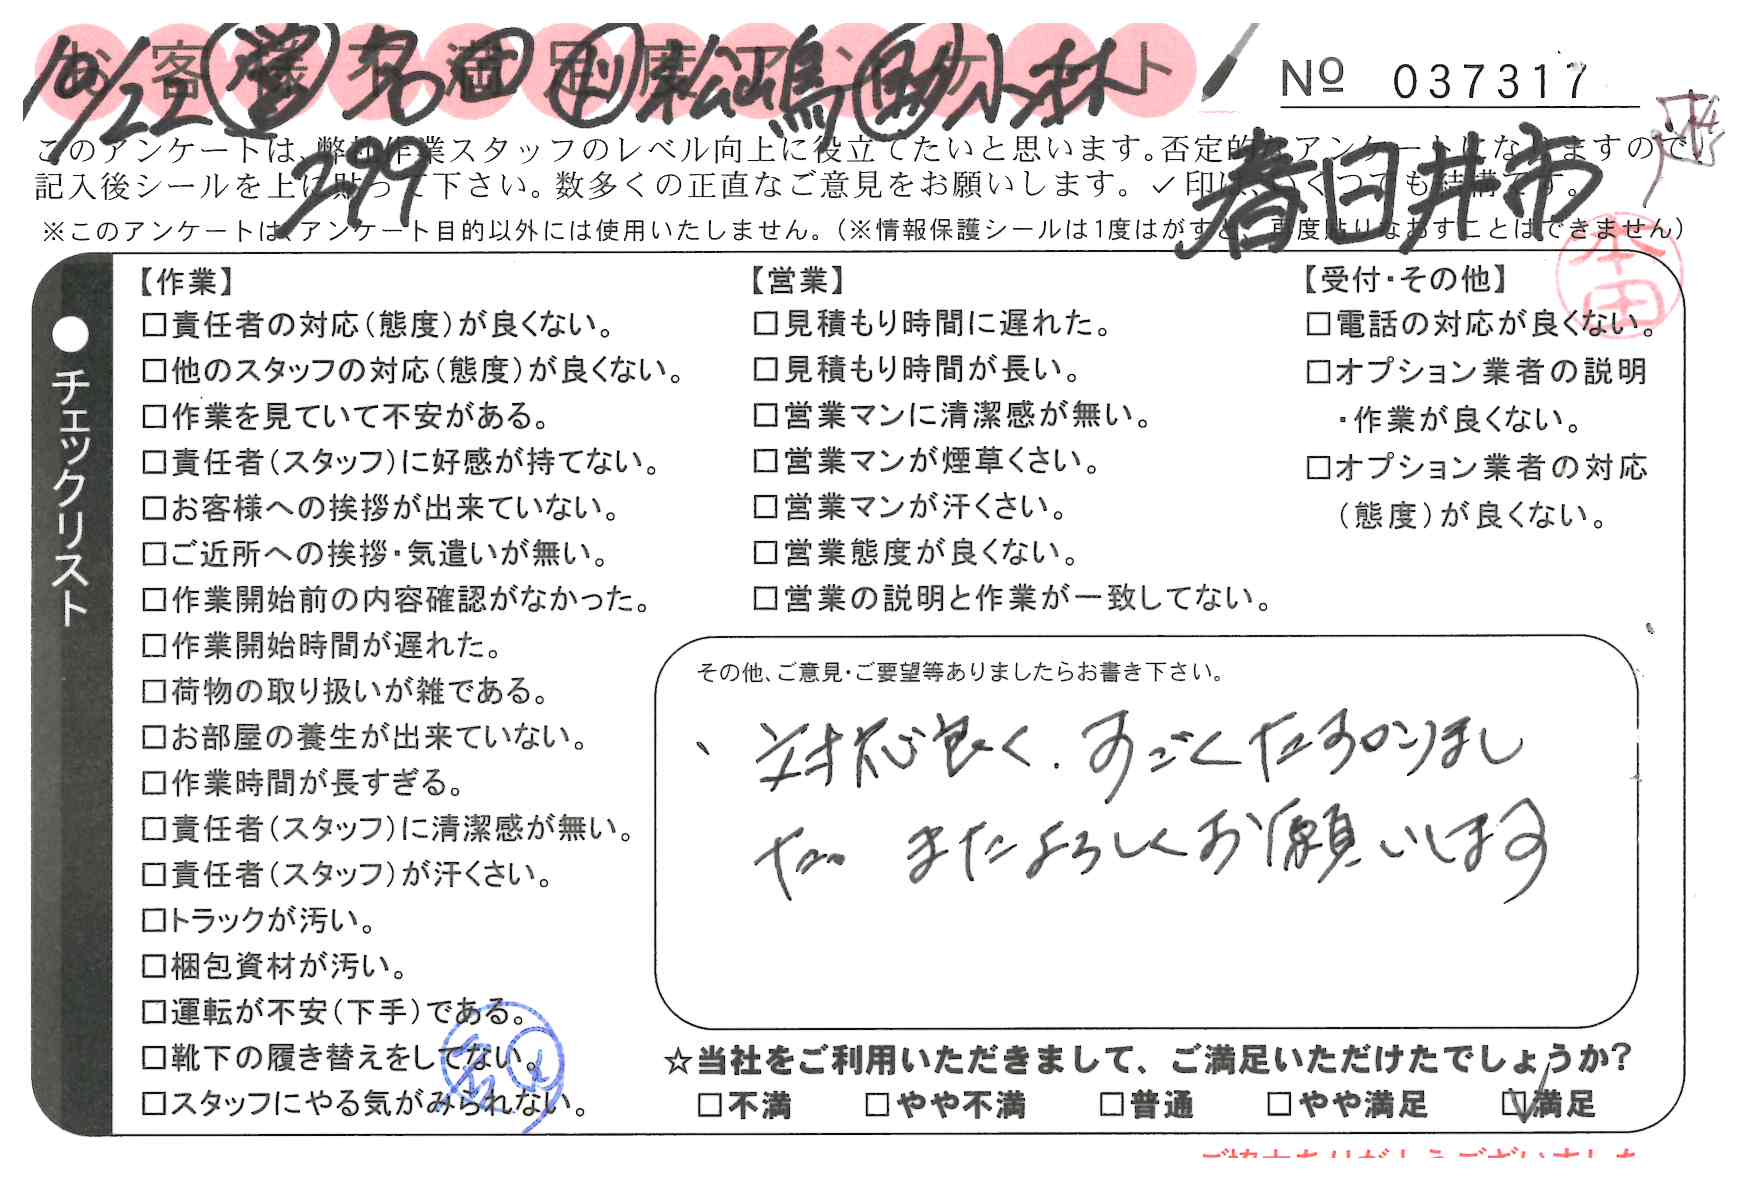 お客様不満足度アンケート
10/22 営 名田 ド 松嶋 助 小林
№ 037317
このアンケートは、弊社作業スタッフのレベル向上に役立てたいと思います。否定的なアンケートになりますので
記入後シールを上に貼って下さい。数多くの正直なご意見をお願いします。✓印は、いくつでも結構です。
299
春日井市
※このアンケートは、アンケート目的以外には使用いたしません。(※情報保護シールは1度はがすと、再度貼りなおすことはできません)
本田
●チェックリスト
【作業】
□責任者の対応(態度)が良くない。
□他のスタッフの対応(態度)が良くない。
□作業を見ていて不安がある。
□責任者(スタッフ)に好感が持てない。
□お客様への挨拶が出来ていない。
□ご近所への挨拶・気遣いが無い。
□作業開始前の内容確認がなかった。
□作業開始時間が遅れた。
□荷物の取り扱いが雑である。
□お部屋の養生が出来ていない。
□作業時間が長すぎる。
□責任者(スタッフ)に清潔感が無い。
□責任者(スタッフ)が汗くさい。
□トラックが汚い。
□梱包資材が汚い。
□運転が不安(下手)である。
□靴下の履き替えをしてない。
□スタッフにやる気がみられない。
【営業】
□見積もり時間に遅れた。
□見積もり時間が長い。
□営業マンに清潔感が無い。
□営業マンが煙草くさい。
□営業マンが汗くさい。
□営業態度が良くない。
□営業の説明と作業が一致してない。
【受付・その他】
□電話の対応が良くない。
□オプション業者の説明
・作業が良くない。
□オプション業者の対応
(態度)が良くない。
その他、ご意見・ご要望等ありましたらお書き下さい。
、対応良く、すごくたすかりまし
た。またよろしくお願いします
☆当社をご利用いただきまして、ご満足いただけたでしょうか?
□不満 □やや不満 □普通 □やや満足 ☑満足
ご協力ありがとうございました